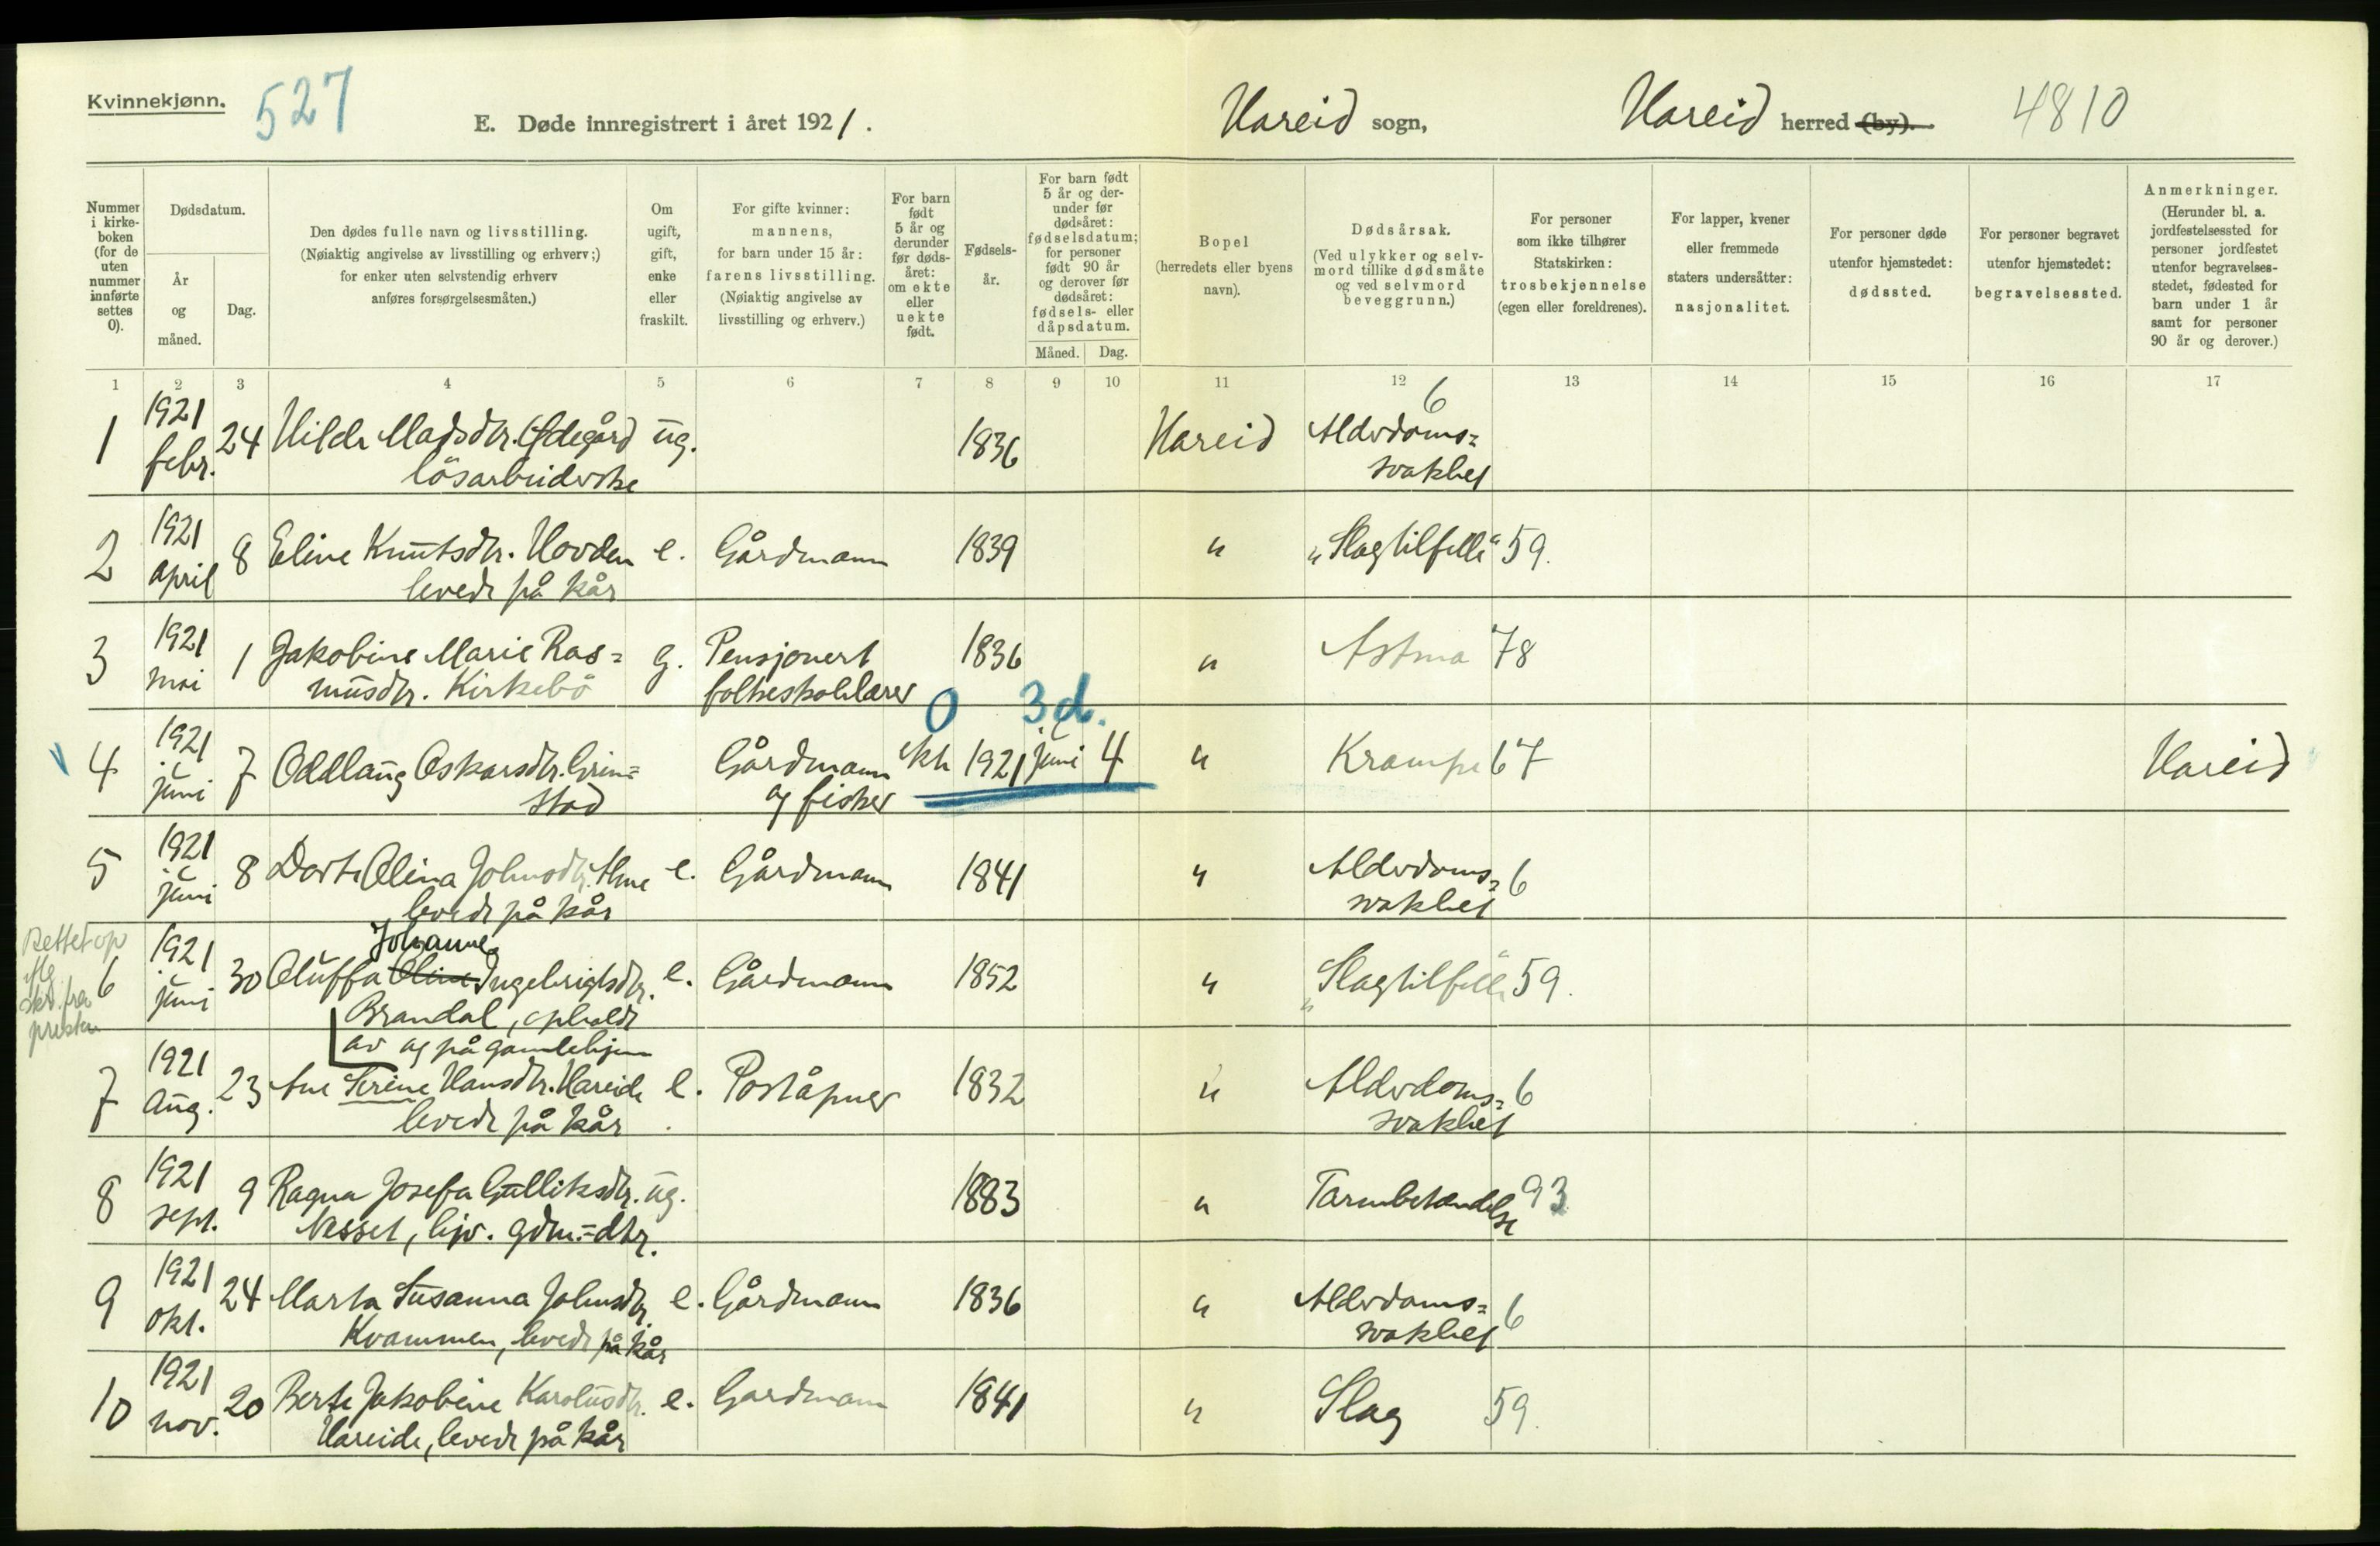 Kvinnekjønn.
527
E. Døde innregistrert i året 1921.
Hareid sogn,
Hareid herred (by).
4810
Nummer i kirke-boken (for de uten nummer innførte settes 0).
Dødsdatum.
År og måned.
Dag.
Den dødes fulle navn og livsstilling.
(Nøiaktig angivelse av livsstilling og erhverv;)
for enker uten selvstendig erhverv
anføres forsørgelsesmåten.)
Om ugift, gift, enke eller fraskilt.
For gifte kvinner:
mannens,
for barn under 15 år:
farens livsstilling.
(Nøiaktig angivelse av
livsstilling og erhverv.)
For barn født 5 år og derunder før døds-året: om ekte eller uekte født.
Fødsels-år.
For barn født 5 år og der-under før dødsåret: fødselsdatum; for personer født 90 år og derover før dødsåret: fødsels- eller dåpsdatum.
Måned.
Dag.
Bopel
(herredets eller byens
navn).
Dødsårsak.
(Ved ulykker og selv-
mord tillike dødsmåte
og ved selvmord
beveggrunn.)
For personer
som ikke tilhører
Statskirken:
trosbekjennelse
(egen eller foreldrenes).
For lapper, kvener
eller fremmede
staters undersåtter:
nasjonalitet.
For personer døde
utenfor hjemstedet:
dødssted.
For personer begravet
utenfor hjemstedet:
begravelsessted.
Anmerkninger.
(Herunder bl. a.
jordfestelsessted for
personer jordfestet
utenfor begravelses-
stedet, fødested for
barn under 1 år
samt for personer
90 år og derover.)
1 2 3 4 5 6 7 8 9 10 11 12 13 14 15 16 17
1 1921 febr. 24 Hilda Madsdtr. Ødegård ug. 1836 Hareid Alderdoms= 6
løsarbeiderske svakhet
2 1921 april 8 Eline Knutsdtr. Hovden e. Gårdmann 1839 " „Slagtilfelle“ 59.
levede på kår
3 1921 mai 1 Jakobine Marie Ras= g. Pensjonert 1836 " Astma 78
musdtr. Kirkebø folkeskolelærer
0 3 d.
4 1921 juni 7 Oddlaug Oskarsdtr. Grim= Gårdmann ekte 1921 juni 4 " Krampe 67 Hareid
stad og fisker
5 1921 juni 8 Dorte Olina Johnsdtr. Alme e. Gårdmann 1841 " Alderdoms= 6
levede på kår svakhet
Rettet op
efter
skr. fra
presten
Johanne
6 1921 juni 30 Oluffa Oline Ingebrigtsdtr. e. Gårdmann 1852 " „Slagtilfelle“ 59.
Brandal, opholdt
av og på gamlehjem
7 1921 aug. 23 Ane Serine Hansdtr. Hareide e. Poståpner 1832 " Alderdoms= 6
levede på kår svakhet
8 1921 sept. 9 Ragna Josefa Gulliksdtr. ug. 1883 " Tarmbetændelse 93
Nesset, hjv. gdm.=dtr.
9 1921 okt. 24 Marta Susanna Johnsdtr. e. Gårdmann 1836 " Alderdoms= 6
Kvammen, levede på kår svakhet
10 1921 nov. 20 Berte Jakobine Karolusdtr. e. Gardmann 1841 " Slag 59.
Hareide, levede på kår